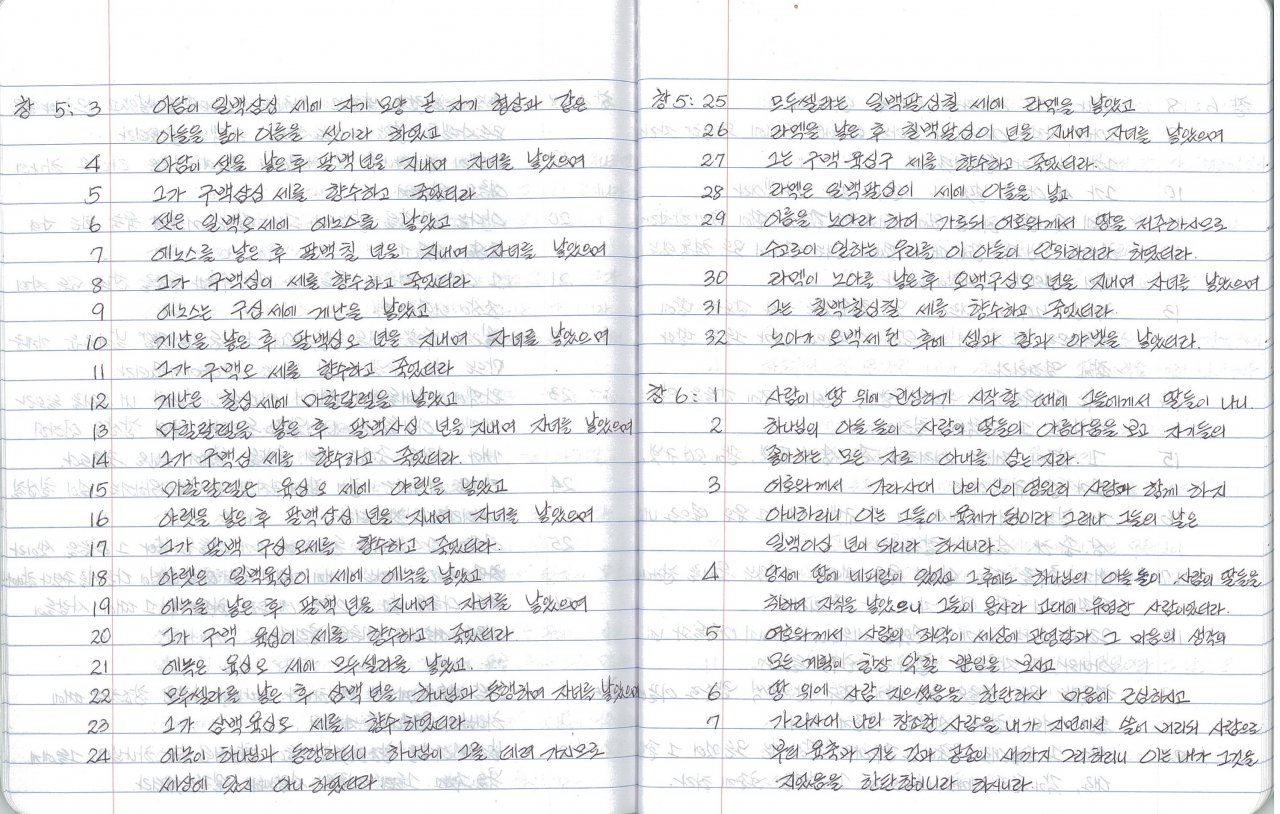 창 5: 3 아담이 일백삼십 세에 자기 모양 곧 자기 형상과 같은
아들을 낳아 이름을 셋이라 하였고
4 아담이 셋을 낳은 후 팔백 년을 지내며 자녀를 낳았으며
5 그가 구백삼십 세를 향수하고 죽었더라
6 셋은 일백오세에 에노스를 낳았고
7 에노스를 낳은 후 팔백칠 년을 지내며 자녀를 낳았으며
8 그가 구백십이 세를 향수하고 죽었더라
9 에노스는 구십세에 게난을 낳았고
10 게난을 낳은 후 팔백십오 년을 지내며 자녀를 낳았으며
11 그가 구백오 세를 향수하고 죽었더라
12 게난은 칠십세에 마할랄렐을 낳았고
13 마할랄렐을 낳은 후 팔백사십 년을 지내며 자녀를 낳았으며
14 그가 구백십 세를 향수하고 죽었더라.
15 마할랄렐은 육십오 세에 야렛을 낳았고
16 야렛을 낳은 후 팔백삼십 년을 지내며 자녀를 낳았으며
17 그가 팔백 구십오세를 향수하고 죽었더라.
18 야렛은 일백육십이 세에 에녹을 낳았고
19 에녹을 낳은 후 팔백 년을 지내며 자녀를 낳았으며
20 그가 구백 육십이 세를 향수하고 죽었더라
21 에녹은 육십오 세에 모두셀라를 낳았고.
22 모두셀라를 낳은 후 삼백 년을 하나님과 동행하며 자녀를 낳았으며
23 그가 삼백육십오 세를 향수하였더라
24 에녹이 하나님과 동행하더니 하나님이 그를 데려 가시므로
세상에 있지 아니하였더라
창 5: 25 모두셀라는 일백팔십칠 세에 라멕을 낳았고
26 라멕을 낳은 후 칠백팔십이 년을 지내며 자녀를 낳았으며
27 그는 구백 육십구 세를 향수하고 죽었더라.
28 라멕은 일백팔십이 세에 아들을 낳고
29 이름을 노아라 하여 가로되 여호와께서 땅을 저주하시므로
수고로이 일하는 우리를 이 아들이 안위하리라 하였더라.
30 라멕이 노아를 낳은 후 오백구십오 년을 지내며 자녀를 낳았으며
31 그는 칠백칠십칠 세를 향수하고 죽었더라.
32 노아가 오백세 된 후에 셈과 함과 야벳을 낳았더라.
창 6: 1 사람이 땅 위에 번성하기 시작할 때에 그들에게서 딸들이 나니
2 하나님의 아들들이 사람의 딸들의 아름다움을 보고 자기들의
좋아하는 모든 자로 아내를 삼는지라.
3 여호와께서 가라사대 나의 신이 영원히 사람과 함께 하지
아니하리니 이는 그들이 육체가 됨이라 그러나 그들의 날은
일백이십 년이 되리라 하시니라.
4 당시에 땅에 네피림이 있었고 그후에도 하나님의 아들들이 사람의 딸들을
취하여 자식을 낳았으니 그들이 용사라 고대에 유명한 사람이었더라.
5 여호와께서 사람의 죄악이 세상에 관영함과 그 마음의 생각의
모든 계획이 항상 악할 뿐임을 보시고
6 땅 위에 사람 지으셨음을 한탄하사 마음에 근심하시고
7 가라사대 나의 창조한 사람을 내가 지면에서 쓸어 버리되 사람으로
부터 육축과 기는 것과 공중의 새까지 그리하리니 이는 내가 그것을
지었음을 한탄함이니라 하시니라.